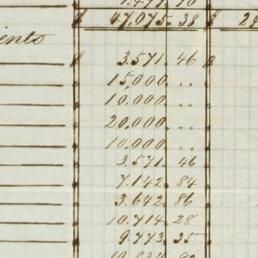 47,075 38
iento
3.571 46
15,000 ..
10.000 ..
20,000 ..
10,000 ..
3.571 46
7.142 84
3.642 86
10.714 28
9.773 35